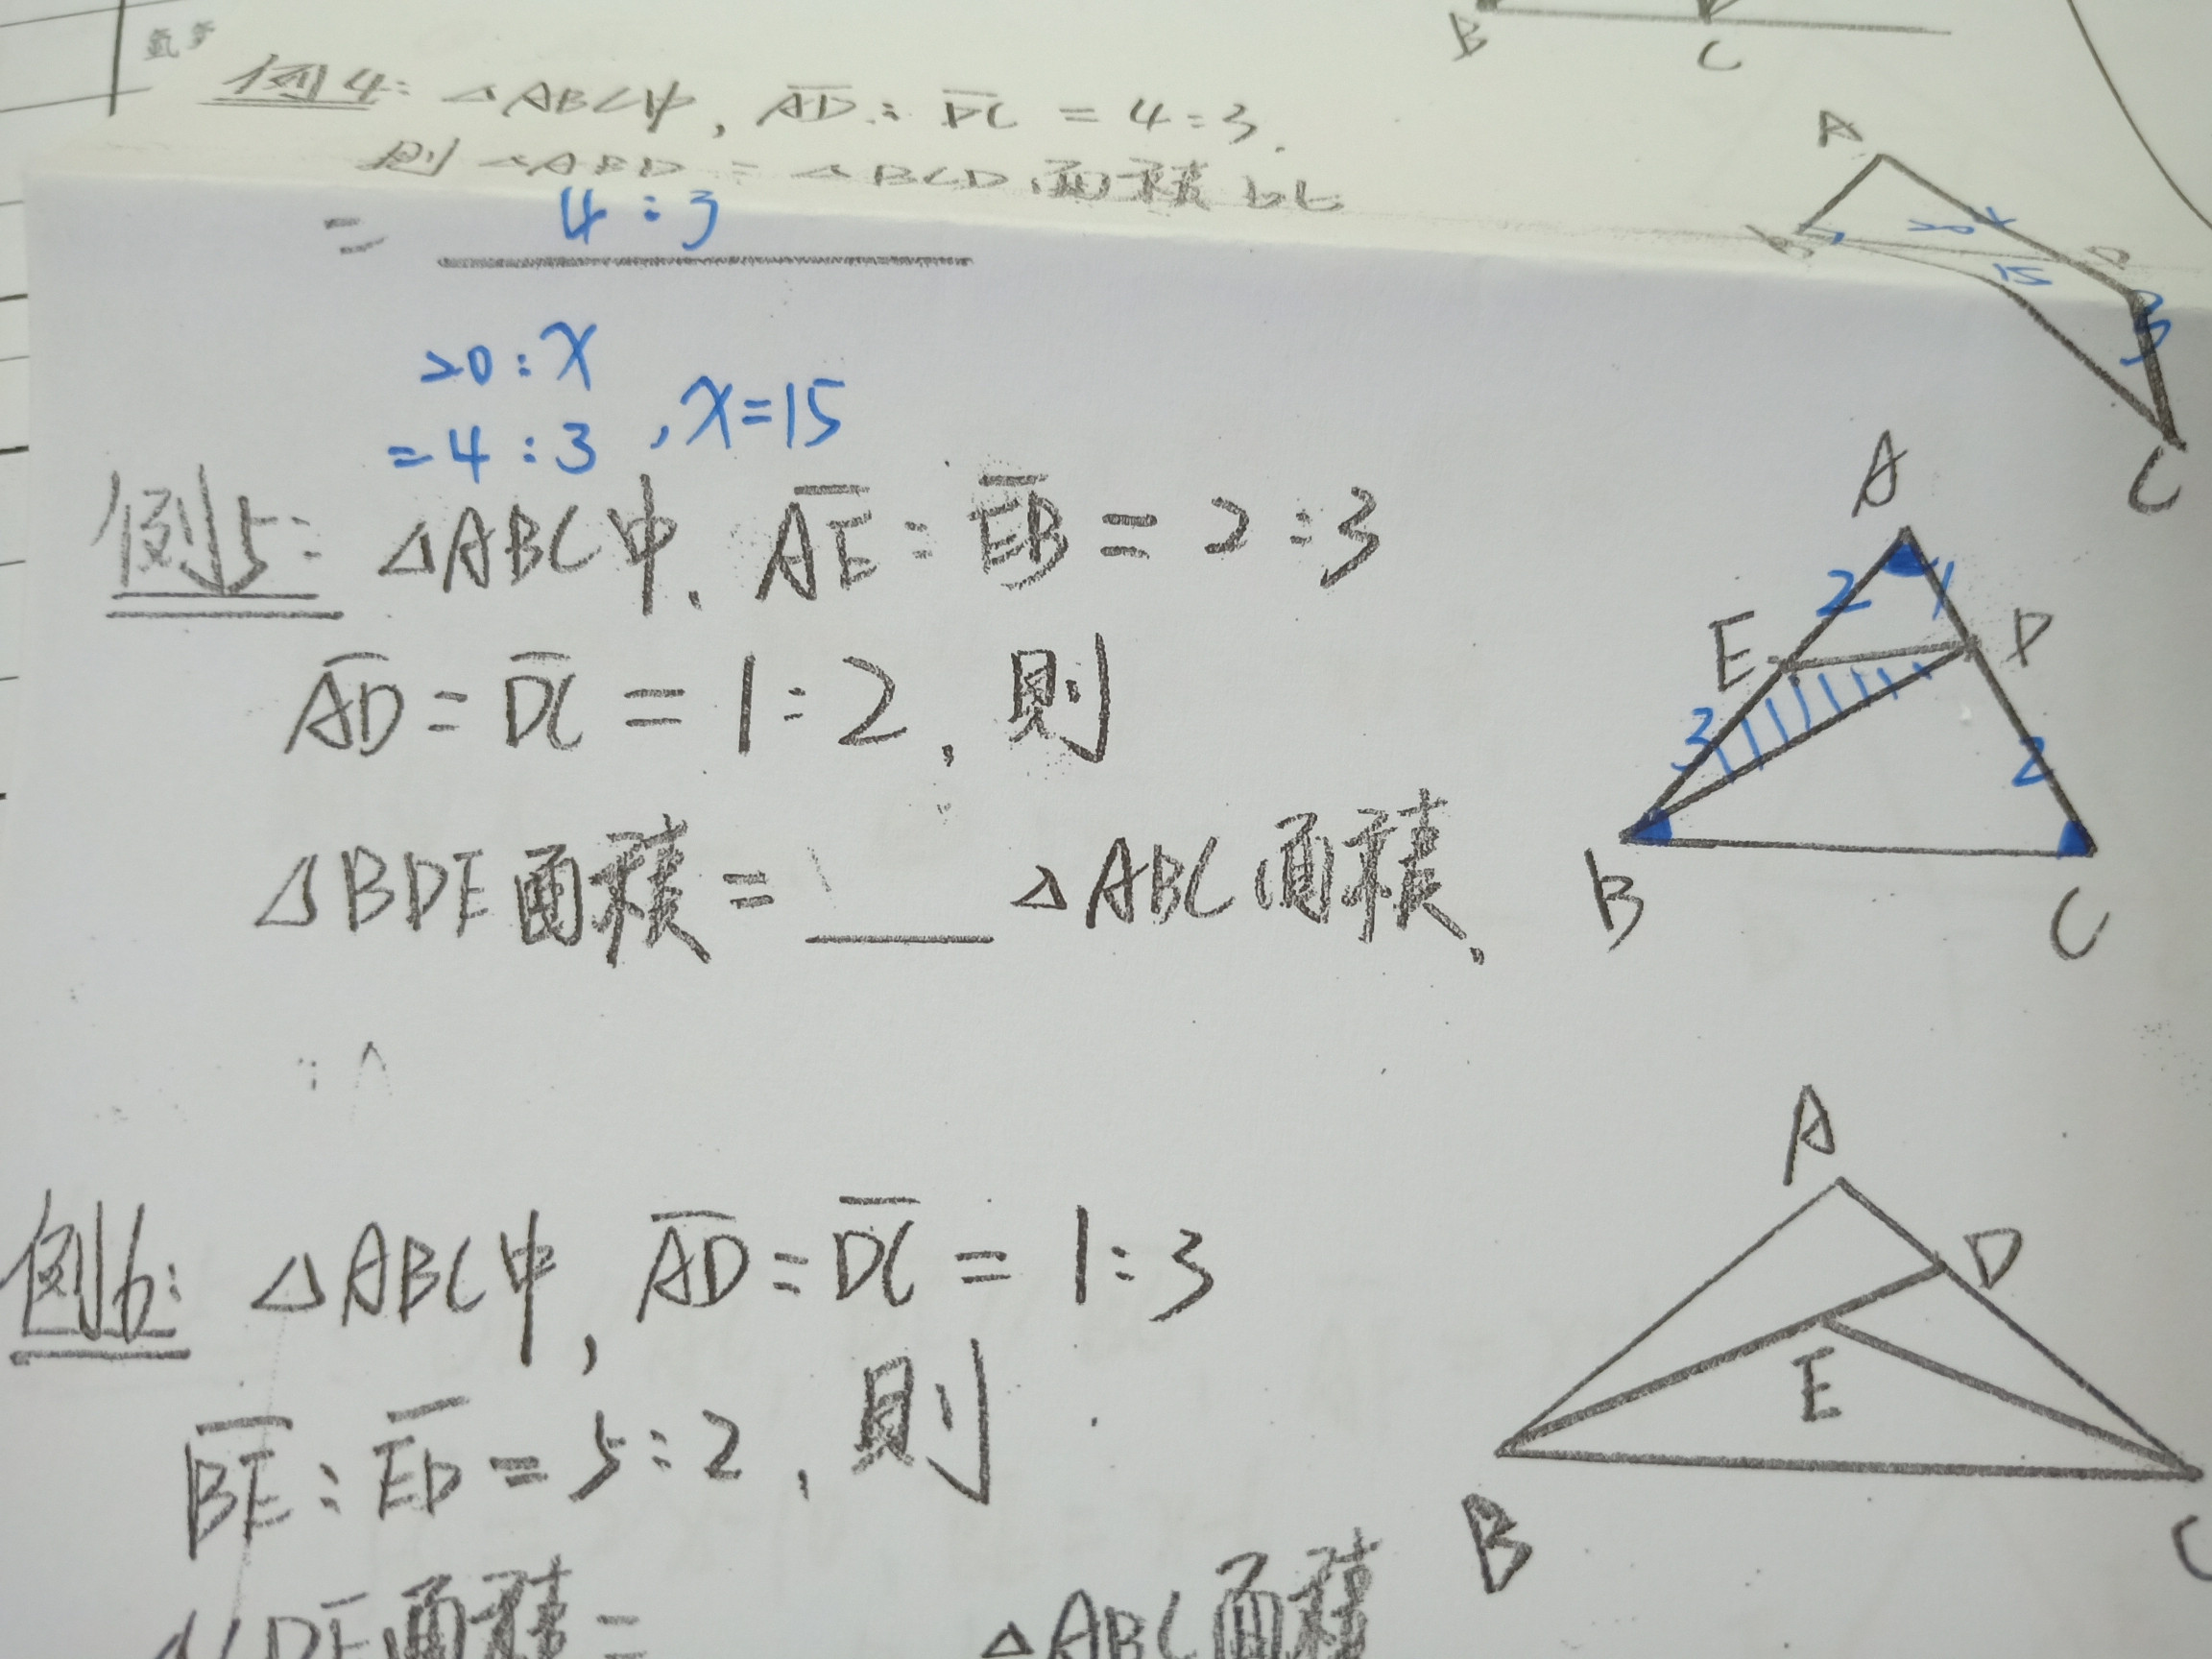 B
C
例4: △ABC中, AD : DC = 4:3.
則 △ABD : △BCD 面積比
= 4:3
A
B
D
15
3
C
20:x
=4:3, x=15
例5: △ABC中. AE : EB = 2:3
AD : DC = 1:2, 則
△BDE面積 = ___ △ABC面積.
A
2
1
E
D
3
2
B
C
例6: △ABC中, AD : DC = 1:3
BE : ED = 5:2, 則
△CDE面積 = △ABC面積
A
D
E
B
C